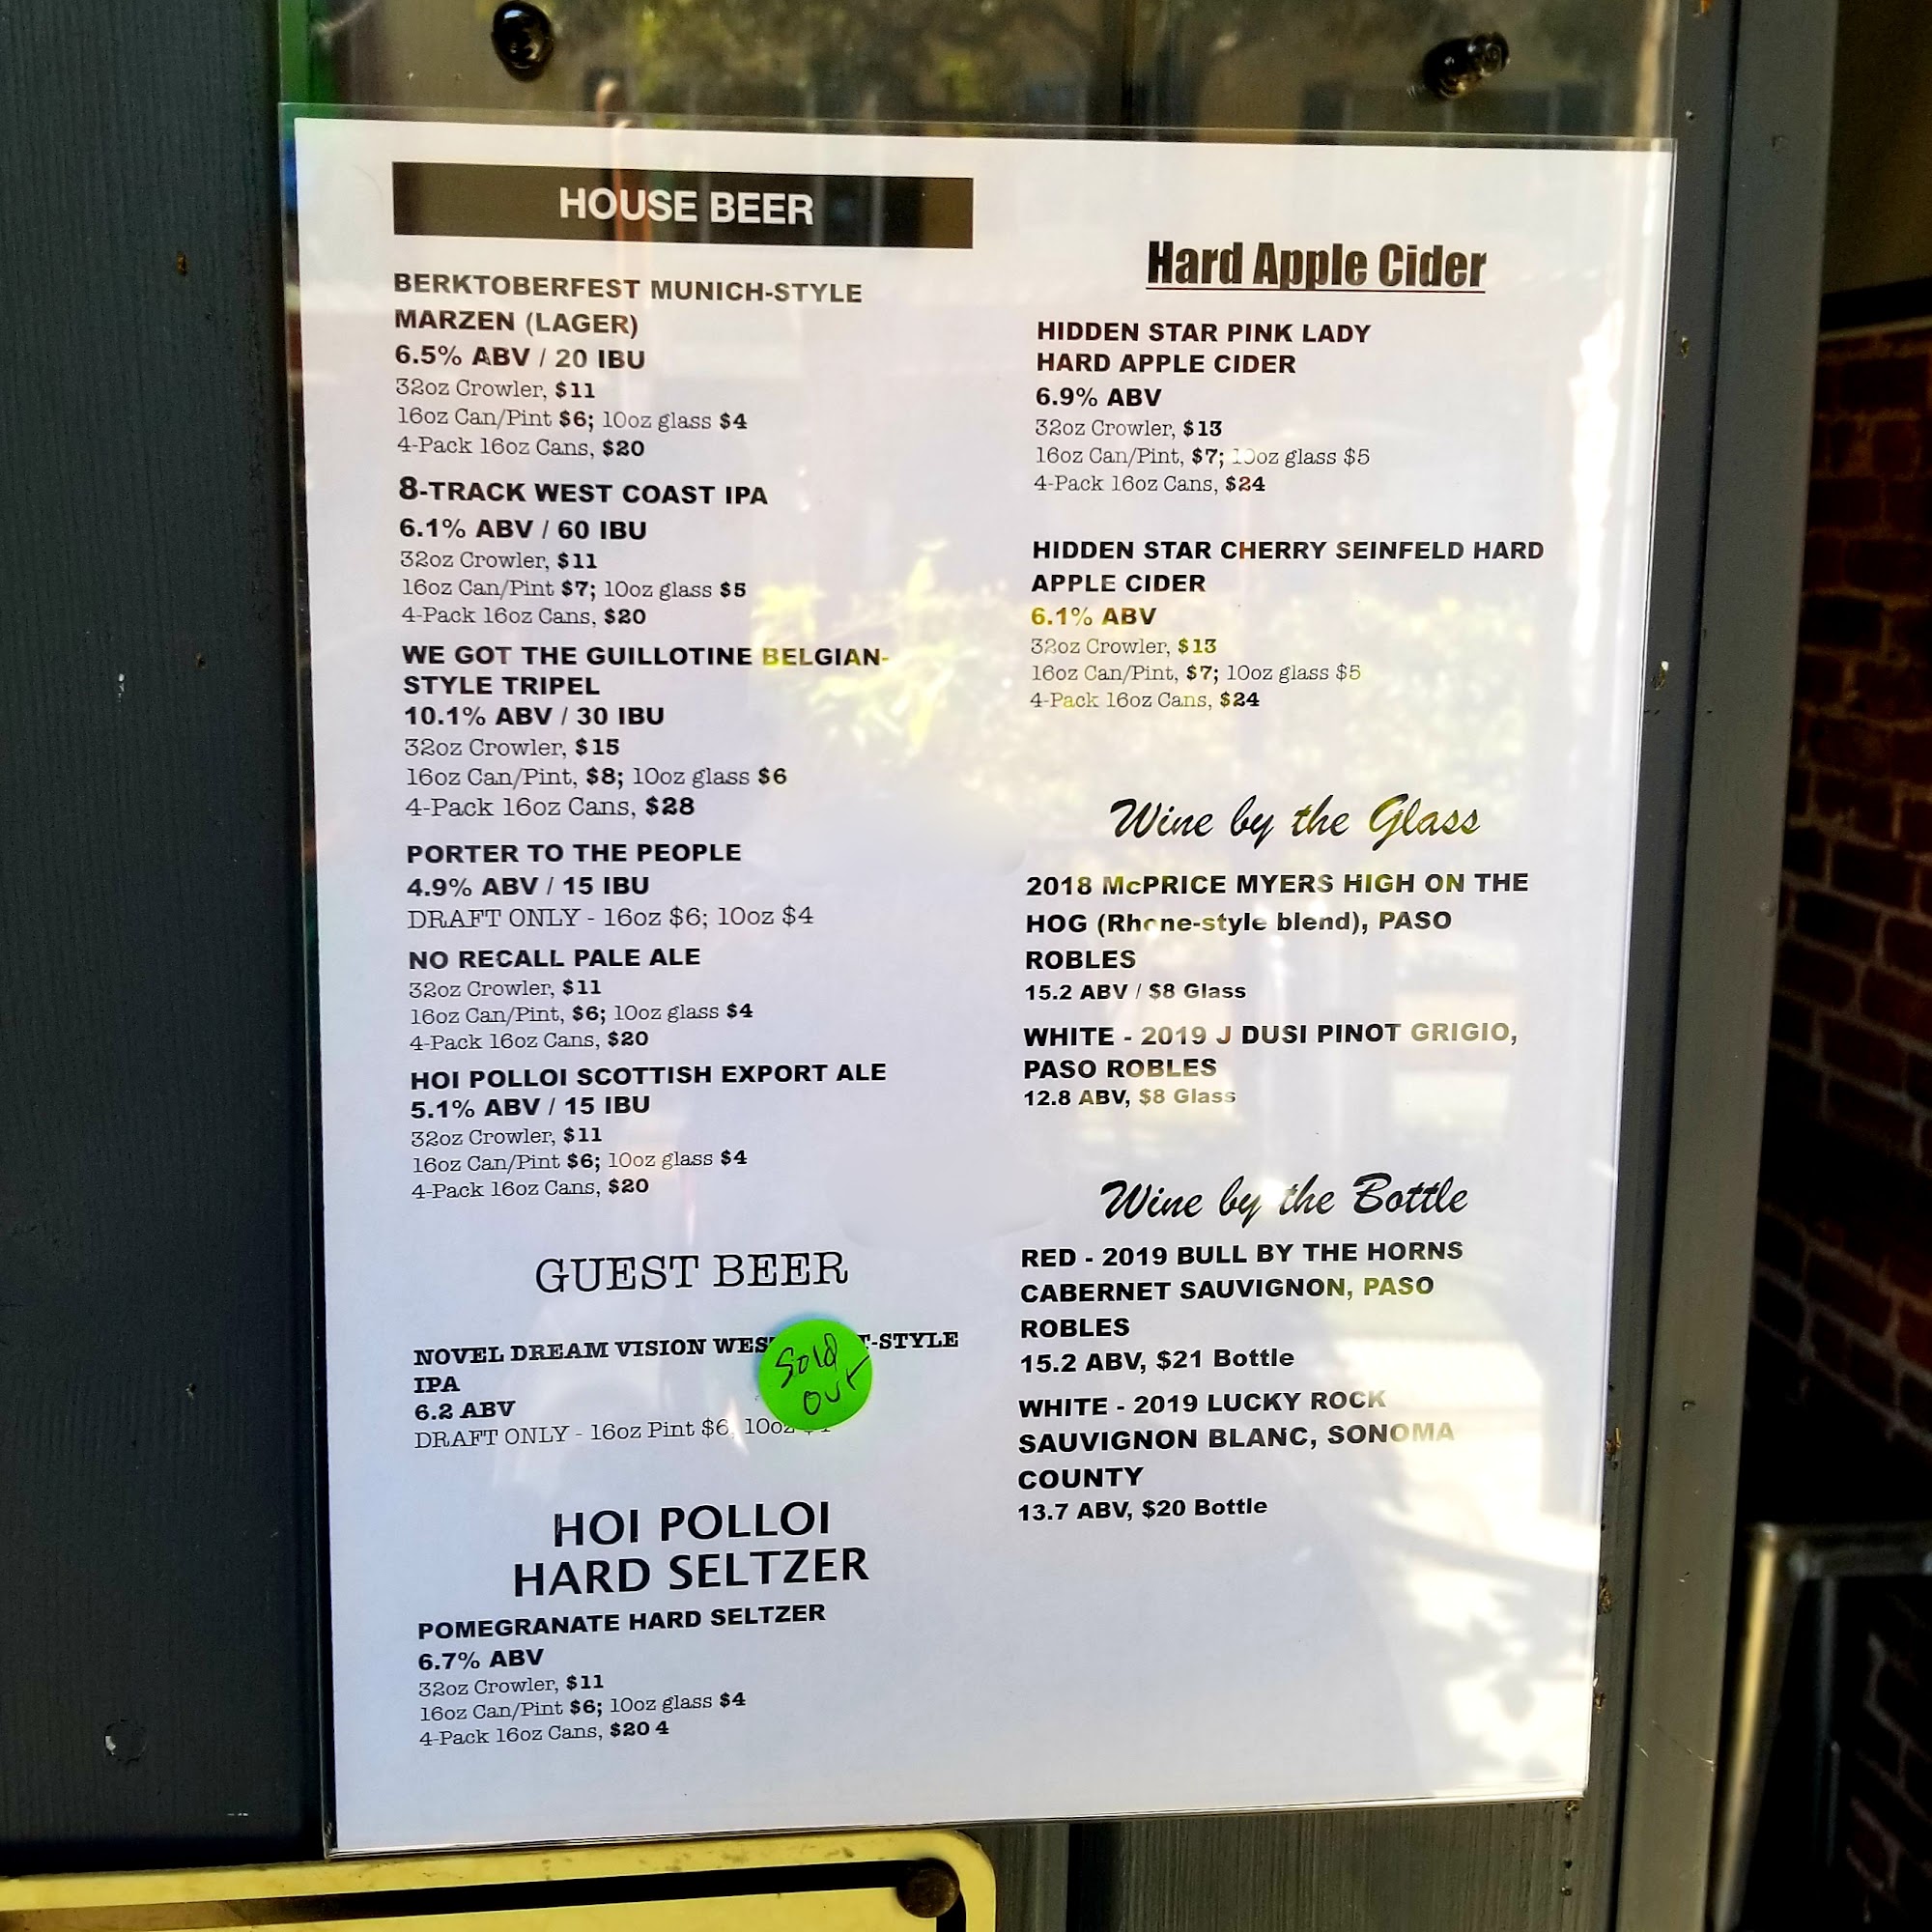 HOUSE BEER
BERKTOBERFEST MUNICH-STYLE
MARZEN (LAGER)
6.5% ABV / 20 IBU
32oz Crowler, $11
16oz Can/Pint $6; 10oz glass $4
4-Pack 16oz Cans, $20
8-TRACK WEST COAST IPA
6.1% ABV / 60 IBU
32oz Crowler, $11
16oz Can/Pint $7; 10oz glass $5
4-Pack 16oz Cans, $20
WE GOT THE GUILLOTINE BELGIAN-
STYLE TRIPEL
10.1% ABV / 30 IBU
32oz Crowler, $15
16oz Can/Pint, $8; 10oz glass $6
4-Pack 16oz Cans, $28
PORTER TO THE PEOPLE
4.9% ABV / 15 IBU
DRAFT ONLY - 16oz $6; 10oz $4
NO RECALL PALE ALE
32oz Crowler, $11
16oz Can/Pint, $6; 10oz glass $4
4-Pack 16oz Cans, $20
HOI POLLOI SCOTTISH EXPORT ALE
5.1% ABV / 15 IBU
32oz Crowler, $11
16oz Can/Pint $6; 10oz glass $4
4-Pack 16oz Cans, $20
GUEST BEER
NOVEL DREAM VISION -STYLE
IPA
6.2 ABV
DRAFT ONLY - 16oz Pint $6, 10oz
Sold
Out
HOI POLLOI
HARD SELTZER
POMEGRANATE HARD SELTZER
6.7% ABV
32oz Crowler, $11
16oz Can/Pint $6; 10oz glass $4
4-Pack 16oz Cans, $20 4
Hard Apple Cider
HIDDEN STAR PINK LADY
HARD APPLE CIDER
6.9% ABV
32oz Crowler, $13
16oz Can/Pint, $7; 10oz glass $5
4-Pack 16oz Cans, $24
HIDDEN STAR CHERRY SEINFELD HARD
APPLE CIDER
6.1% ABV
32oz Crowler, $13
16oz Can/Pint, $7; 10oz glass $5
4-Pack 16oz Cans, $24
Wine by the Glass
2018 McPRICE MYERS HIGH ON THE
HOG (Rhone-style blend), PASO
ROBLES
15.2 ABV / $8 Glass
WHITE - 2019 J DUSI PINOT GRIGIO,
PASO ROBLES
12.8 ABV, $8 Glass
Wine by the Bottle
RED - 2019 BULL BY THE HORNS
CABERNET SAUVIGNON, PASO
ROBLES
15.2 ABV, $21 Bottle
WHITE - 2019 LUCKY ROCK
SAUVIGNON BLANC, SONOMA
COUNTY
13.7 ABV, $20 Bottle